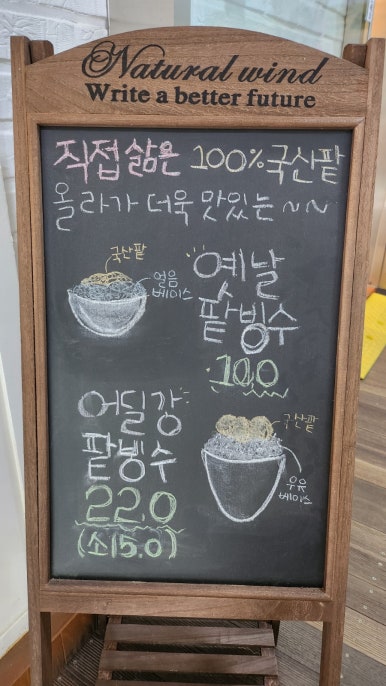 Natural wind
Write a better future
직접 삶은 100% 국산팥
올라가 더욱 맛있는 ~~
국산팥
얼음
베이스
옛날
팥빙수
10.0
어딜강
팥빙수
22.0
(소15.0)
국산팥
우유
베이스